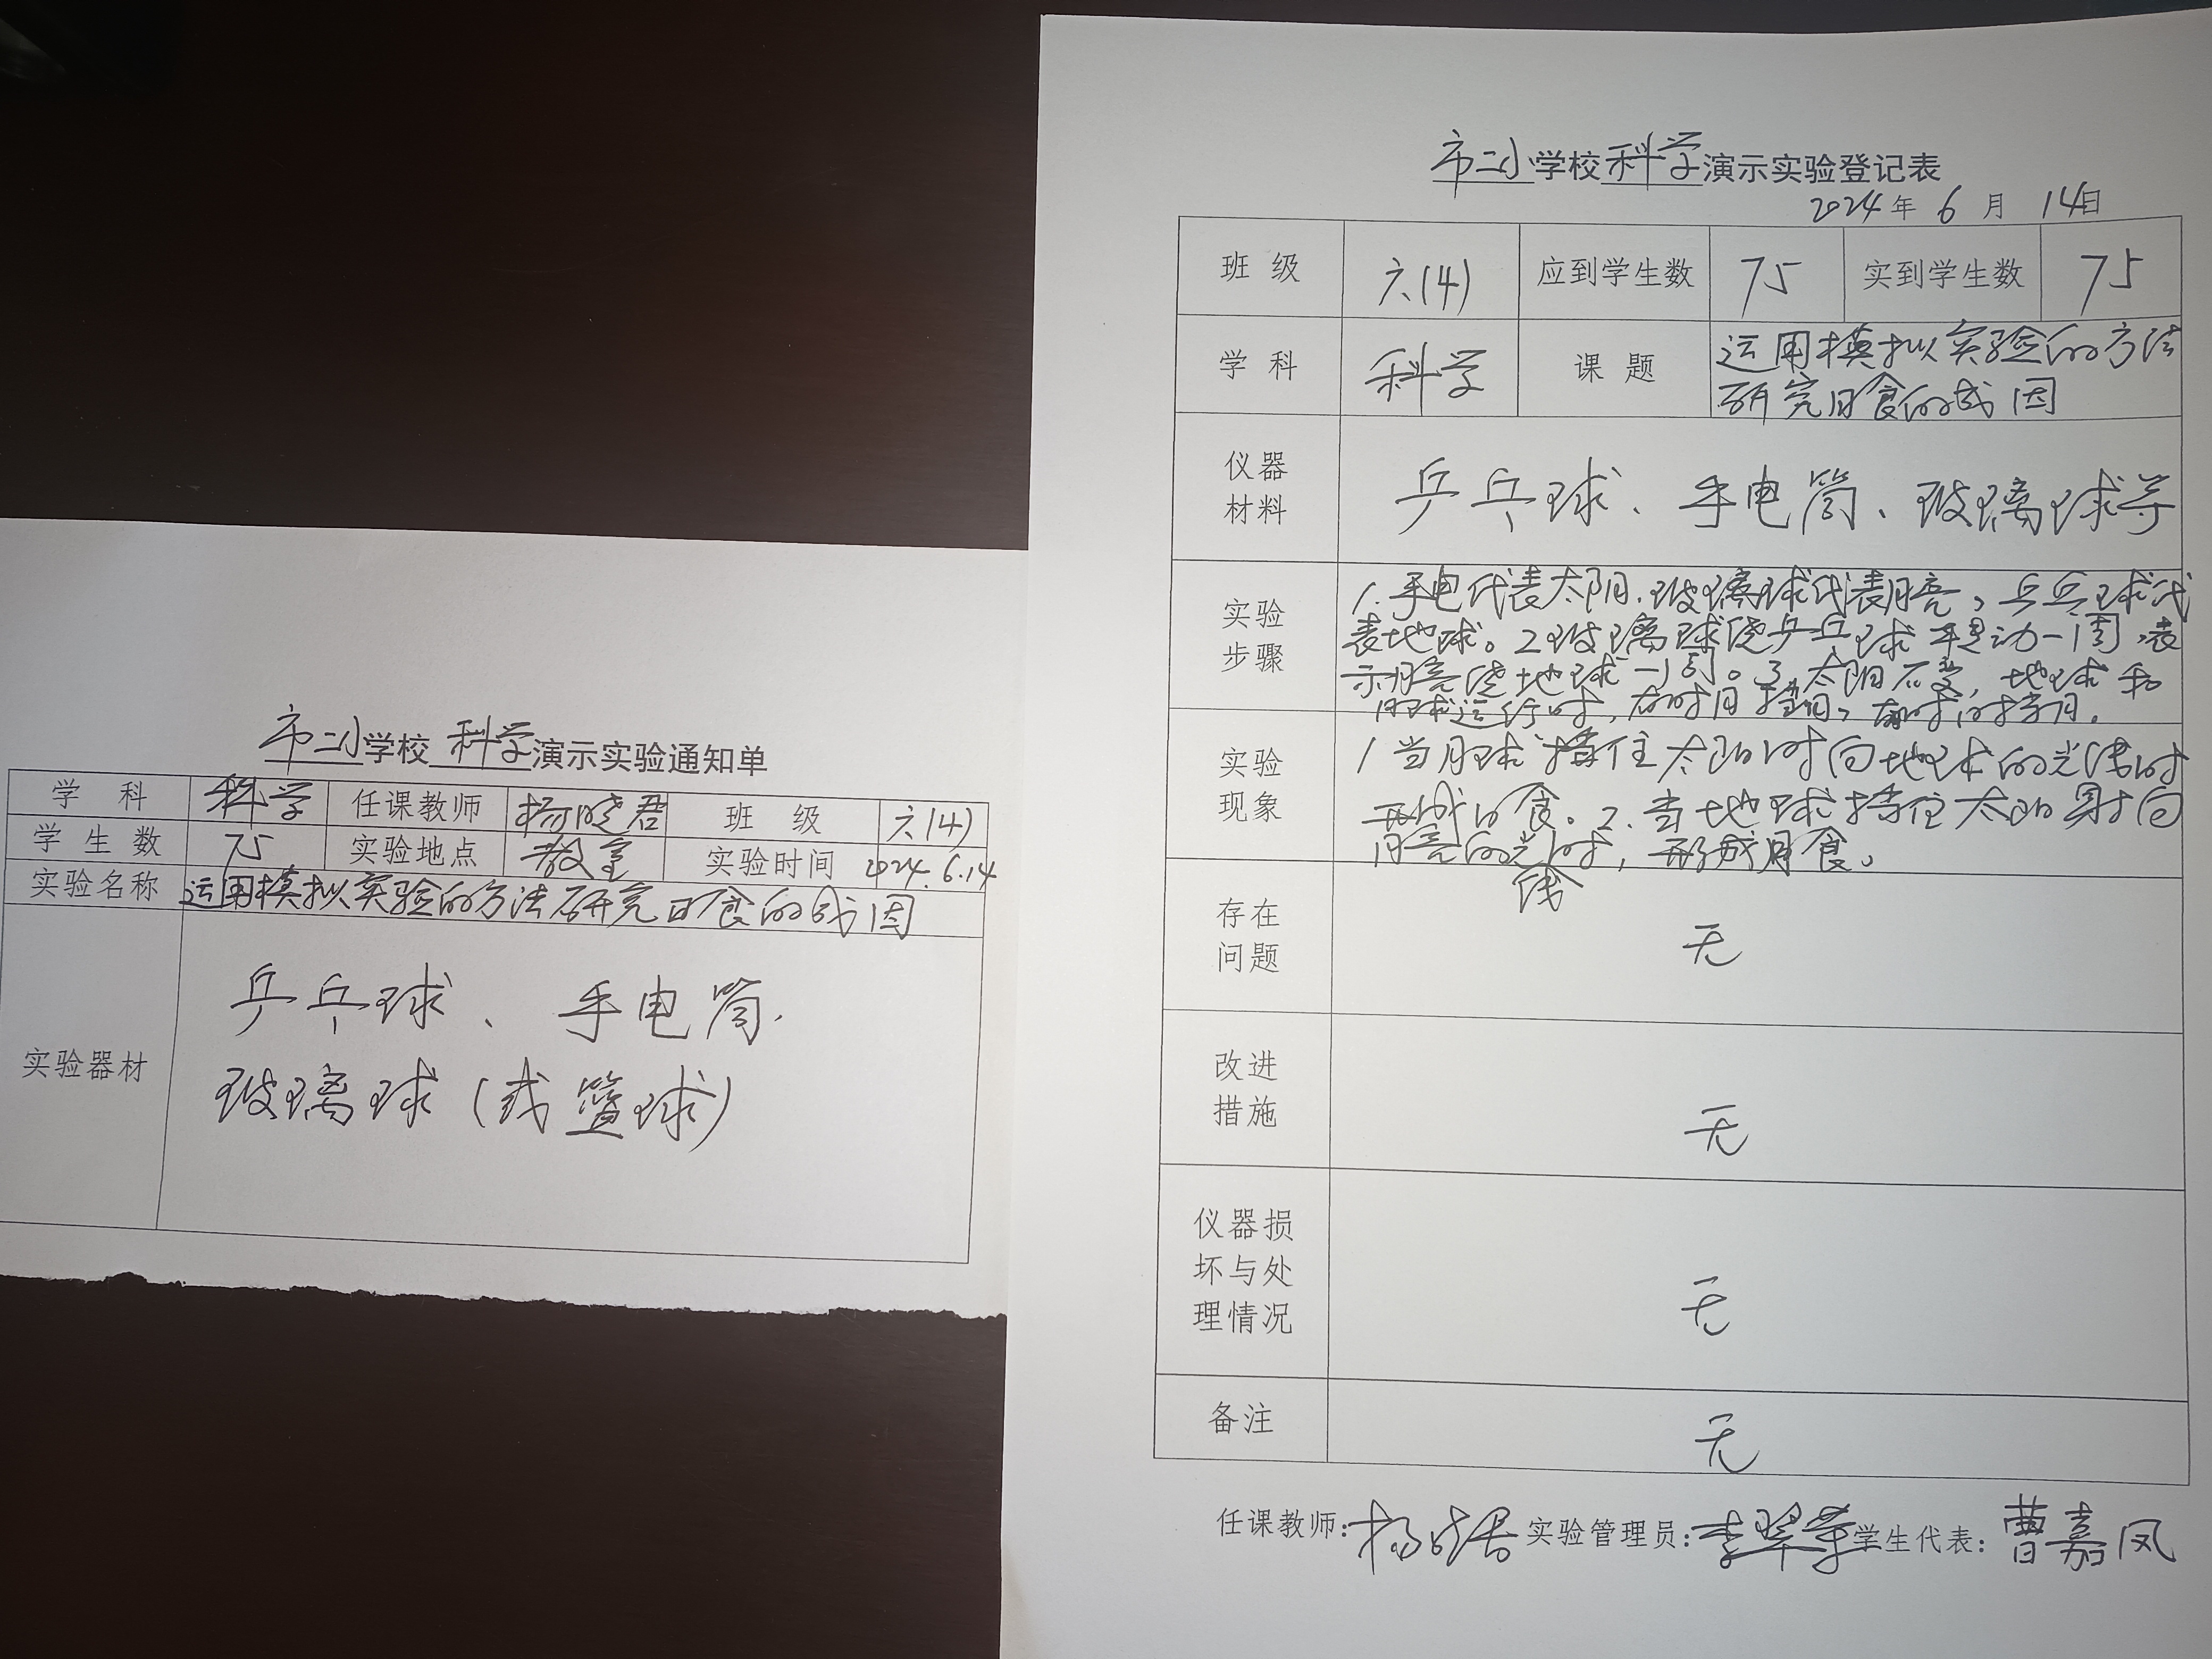 市二小学校科学演示实验通知单
学 科 科学 任课教师 杨晓君 班 级 六(4)
学生数 75 实验地点 教室 实验时间 2024.6.14
实验名称 运用模拟实验的方法研究日食的成因
实验器材
乒乓球、手电筒.
玻璃球(或篮球)
市二小学校科学演示实验登记表
2024年 6 月 14日
班 级 六(4) 应到学生数 75 实到学生数 75
学 科 科学 课 题
运用模拟实验的方法
研究日食的成因
仪器
材料
乒乓球、手电筒、玻璃球等
实验
步骤
1.手电代表太阳.玻璃球代表月亮,乒乓球代
表地球。2.玻璃球绕乒乓球 动一周,表
示月亮绕地球一周。3.太阳不变,地球和
月球运行时,
实验
现象
1当月球挡住太阳射向地球的光线时
形成日食。2.当地球挡住太阳射向
月亮的光线时,形成月食。
存在
问题
无
改进
措施
无
仪器损
坏与处
理情况
无
备注
无
任课教师:杨晓君 实验管理员: 学生代表:曹嘉凤